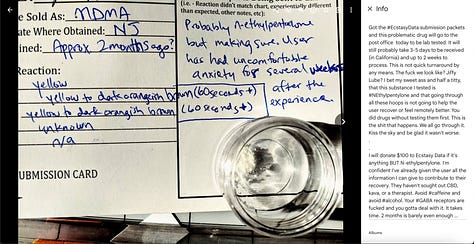 e Sold As: MDMA
ate Where Obtained: NJ
ined: Approx 2 months ago?
Reaction:
yellow
yellow to dark orangish brown (60seconds+)
yellow to dark orangish brown (60seconds+)
unknown
n/a
UBMISSION CARD
(i.e. - Reaction didn't match chart, experientially different
than expected, other notes, etc):
Probably n-ethylpentylone
but making sure. User
has had uncomfortable
anxiety for several weeks
after the
experience.
Info
Got the #EcstasyData submission packets
and this problematic drug will go to the
post office today to be lab tested. It will
still probably take 3-5 days to be received
(in California) and up to 2 weeks to
process. This is not quick turnaround by
any means. The fuck we look like? Jiffy
Lube? I bet my sweet ass and half a titty,
that this substance I tested is
#NEthylpentylone and that going through
all these hoops is not going to help the
user recover or feel remotely better. You
did drugs without testing them first. This is
the shit that happens. We all go through it.
Kiss the sky and be glad it wasn't worse.
I will donate $100 to Ecstasy Data if it's
anything BUT N-ethylpentylone. I'm
confident I've already given the user all the
information I can give to contribute to their
recovery. They haven't sought out CBD,
kava, or a therapist. Avoid #caffeine and
avoid #alcohol. Your #GABA receptors are
fucked and you gotta deal with it. It takes
time. 2 months is barely even enough ...
Albums